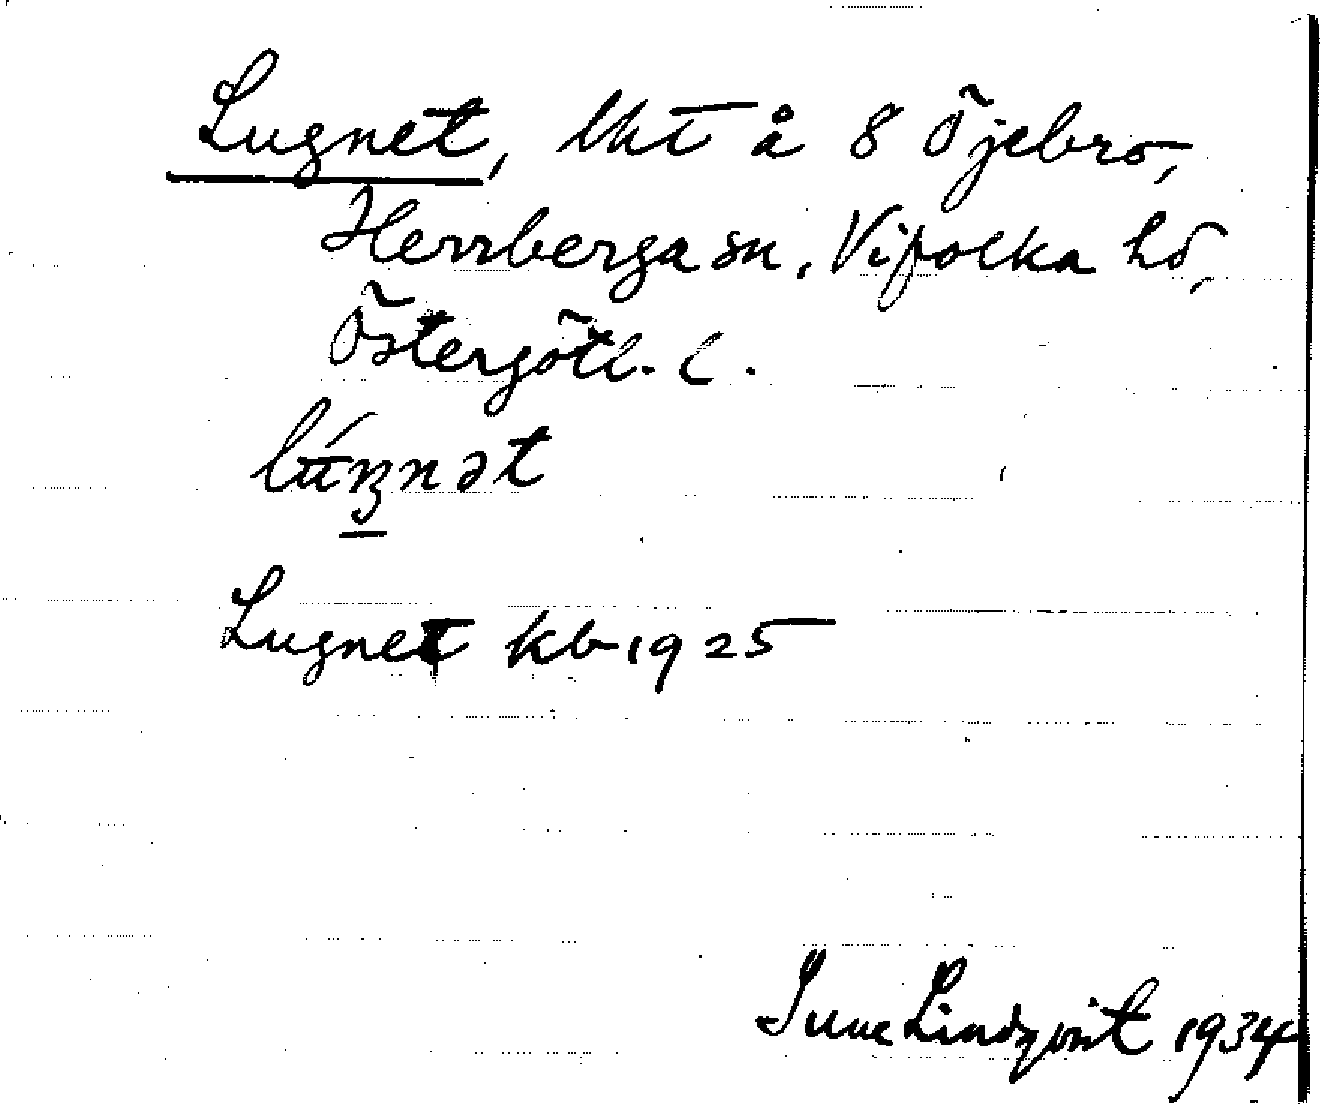 Lugnet, lht å 8 Öjebro,
Herrberga sn, Vifolka hd,
Östergötl. l.
lúŋnət
Lugnet kb 1925
Sune Lindqvist 1934